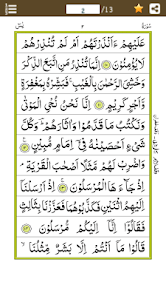 2 /13
سورة ٢ يٰسٓ
عَلَيْهِمْ ءَاَنْذَرْتَهُمْ اَمْ لَمْ تُنْذِرْهُمْ
لَا يُؤْمِنُوْنَ اِنَّمَا تُنْذِرُ مَنِ اتَّبَعَ الذِّكْرَ
وَخَشِيَ الرَّحْمٰنَ بِالْغَيْبِ فَبَشِّرْهُ بِمَغْفِرَةٍ
وَّاَجْرٍ كَرِيْمٍ اِنَّا نَحْنُ نُحْيِ الْمَوْتٰى
وَنَكْتُبُ مَا قَدَّمُوْا وَاٰثَارَهُمْ وَكُلَّ
شَيْءٍ اَحْصَيْنٰهُ فِيْٓ اِمَامٍ مُّبِيْنٍ
وَاضْرِبْ لَهُمْ مَّثَلًا اَصْحٰبَ الْقَرْيَةِ
اِذْ جَآءَهَا الْمُرْسَلُوْنَ اِذْ اَرْسَلْنَآ
اِلَيْهِمُ اثْنَيْنِ فَكَذَّبُوْهُمَا فَعَزَّزْنَا بِثَالِثٍ
فَقَالُوْٓا اِنَّآ اِلَيْكُمْ مُّرْسَلُوْنَ
قَالُوْا مَآ اَنْتُمْ اِلَّا بَشَرٌ مِّثْلُنَا